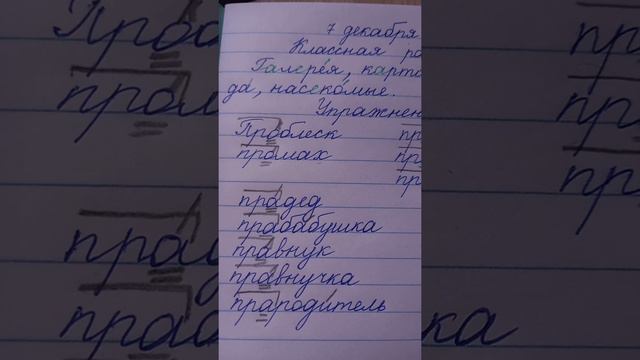 7 декабря
Классная ра
Галерея, карто
да, насекомые.
Упражнен
Проблеск пр
промах пр
пр
прадед
прабабушка
правнук
правнучка
прародитель